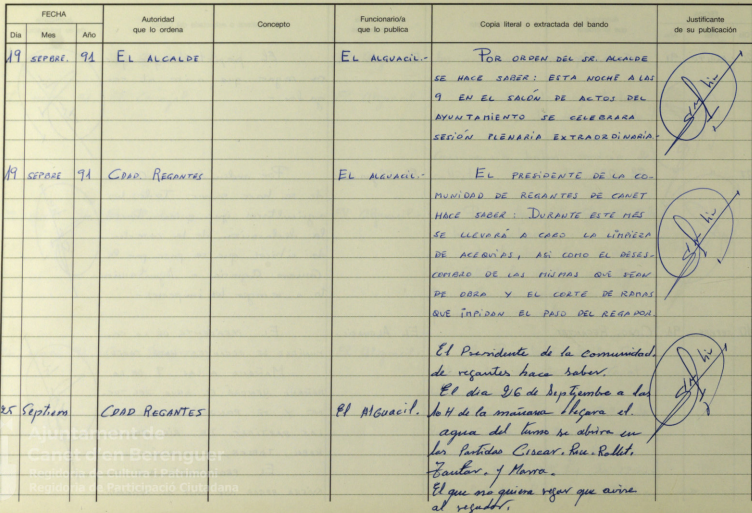 FECHA
Día Mes Año
Autoridad
que lo ordena
Concepto
Funcionario/a
que lo publica
Copia literal o extractada del bando
Justificante
de su publicación
19 SEPBRE. 91 EL ALCALDE EL ALGUACIL.- POR ORDEN DEL SR. ALCALDE
SE HACE SABER: ESTA NOCHE A LAS
9 EN EL SALÓN DE ACTOS DEL
AYUNTAMIENTO SE CELEBRARA
SESIÓN PLENARIA EXTRAORDINARIA.-
19 SEPBRE 91 CDAD. REGANTES EL ALGUACIL.- EL PRESIDENTE DE LA CO-
MUNIDAD DE REGANTES DE CANET
HACE SABER: DURANTE ESTE MES
SE LLEVARÁ A CABO LA LIMPIEZA
DE ACEQUIAS, ASI COMO EL DESES-
COMBRO DE LAS MISMAS QUE SEAN
DE OBRA Y EL CORTE DE RAMAS
QUE IMPIDAN EL PASO DEL REGADOR.
El Presidente de la comunidad.
de regantes hace saber.
El dia 26 de Septiembre a las
25 Septiem CDAD REGANTES El Alguacil. 10 H de la mañana llegara el
agua del turno se abrira en
las Partidas Ciscar. Rallet.
y Marra.
El que no quiera regar que avise
al regador.
Ajuntament de
Canet d'en Berenguer
Regidoria de Cultura i Patrimoni
Regidoria de Participació Ciutadana